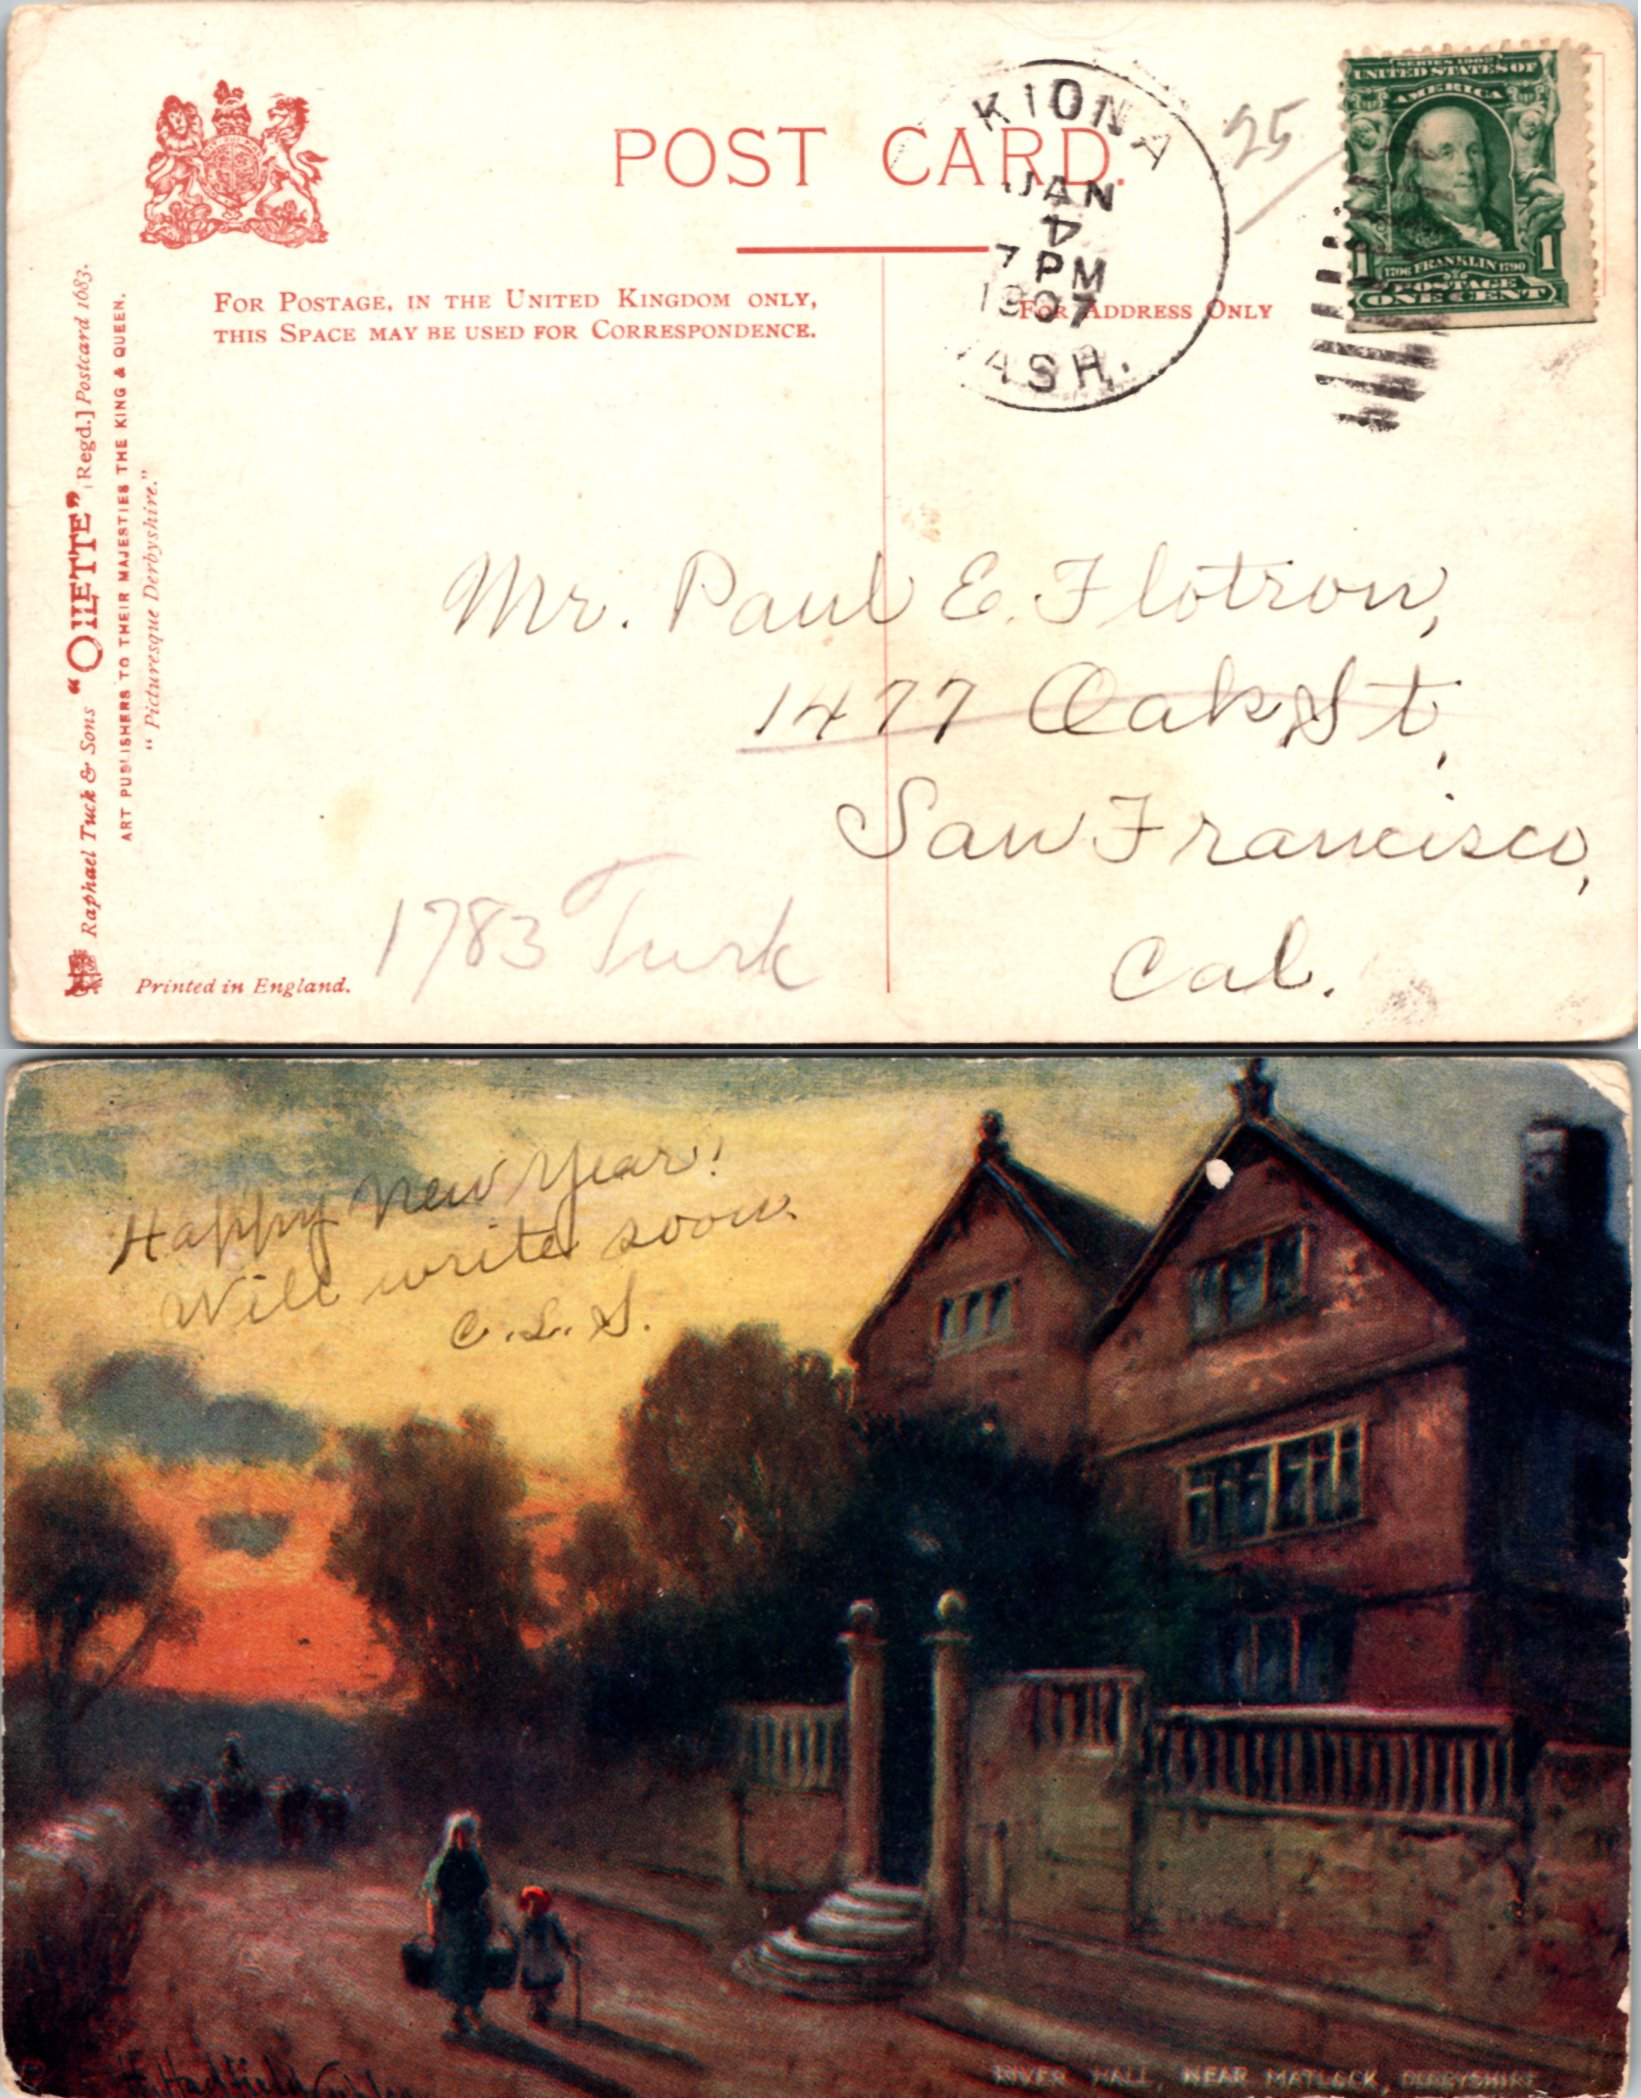 POST CARD.
KIONA
JAN
4
7 PM
1907
WASH.
25
SERIES 1902
UNITED STATES OF
AMERICA
1706 FRANKLIN 1790
1 1
POSTAGE
ONE CENT
FOR POSTAGE, IN THE UNITED KINGDOM ONLY,
THIS SPACE MAY BE USED FOR CORRESPONDENCE.
FOR ADDRESS ONLY
Raphael Tuck & Sons "OILETTE" [Regd.] Postcard 1683.
ART PUBLISHERS TO THEIR MAJESTIES THE KING & QUEEN.
"Picturesque Derbyshire."
Mr. Paul E. Flotron,
1477 Oak St,
San Francisco,
Cal.
1783 Turk
Printed in England.
Happy New Year!
Will write soon.
C.L.S.
H. Hadfield Cubley
RIVER HALL, NEAR MATLOCK, DERBYSHIRE